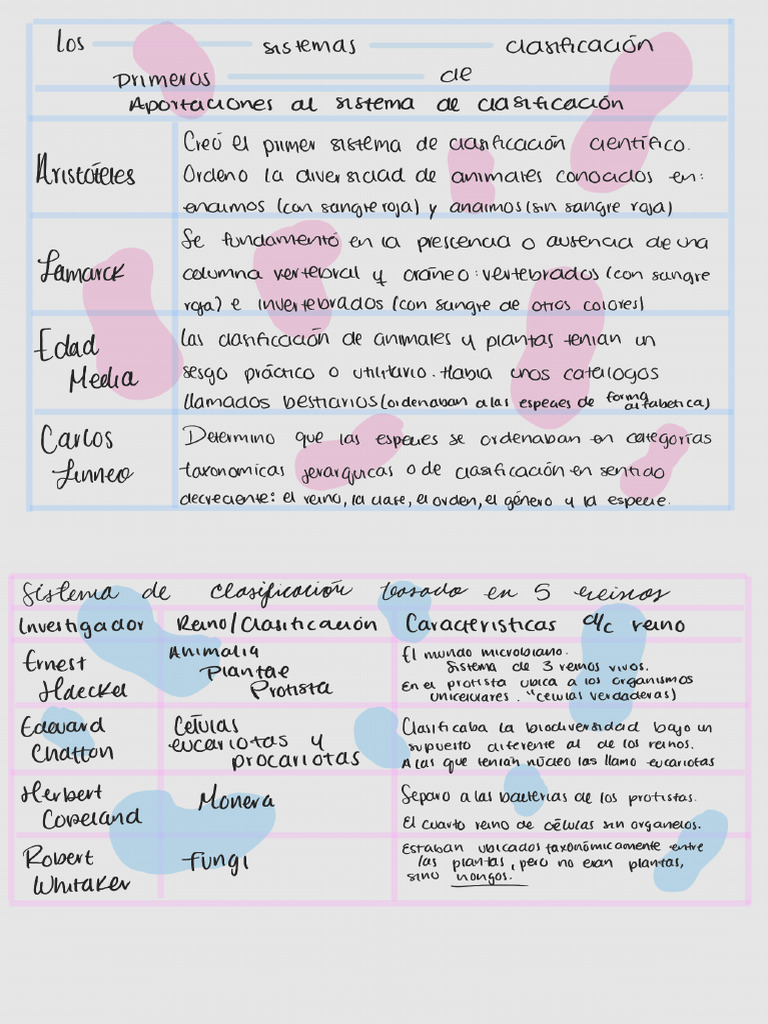 Los sistemas clasificación
Primeros de
Aportaciones al sistema de clasificación
Aristóteles
Creó el primer sistema de clasificación científico.
Ordeno la diversidad de animales conocidos en:
enaimos (con sangre roja) y anaimos (sin sangre roja)
Lamarck
Se fundamentó en la prescencia o ausencia de una
columna vertebral y cráneo: vertebrados (con sangre
roja) e invertebrados (con sangre de otros colores)
Edad
Media
Las clasificación de animales y plantas tenían un
sesgo práctico o utilitario. Había unos catálogos
llamados bestiarios (ordenaban a las especies de forma
alfabetica)
Carlos
Linneo
Determino que las especies se ordenaban en categorías
taxonomicas jerarquicas o de clasificación en sentido
decreciente: el reino, la clase, el orden, el género y la especie.
Sistema de clasificación basado en 5 reinos
Investigador Reino/Clasificación Caracteristicas d/c reino
Ernest
Haeckel
Animalia
Plantae
Protista
El mundo microbiano.
Sistema de 3 reinos vivos.
En el protista ubica a los organismos
unicelulares. "celulas verdaderas)
Edouard
Chatton
Células
eucariotas y
procariotas
Clasificaba la biodiversidad bajo un
supuesto diferente al de los reinos.
A las que tenían núcleo las llamo eucariotas
Herbert
Copeland
Monera
Separo a las bacterias de los protistas.
El cuarto reino de células sin organelos.
Robert
Whitaker
Fungi
Estaban ubicados taxonómicamente entre
las plantas, pero no eran plantas,
sino hongos.